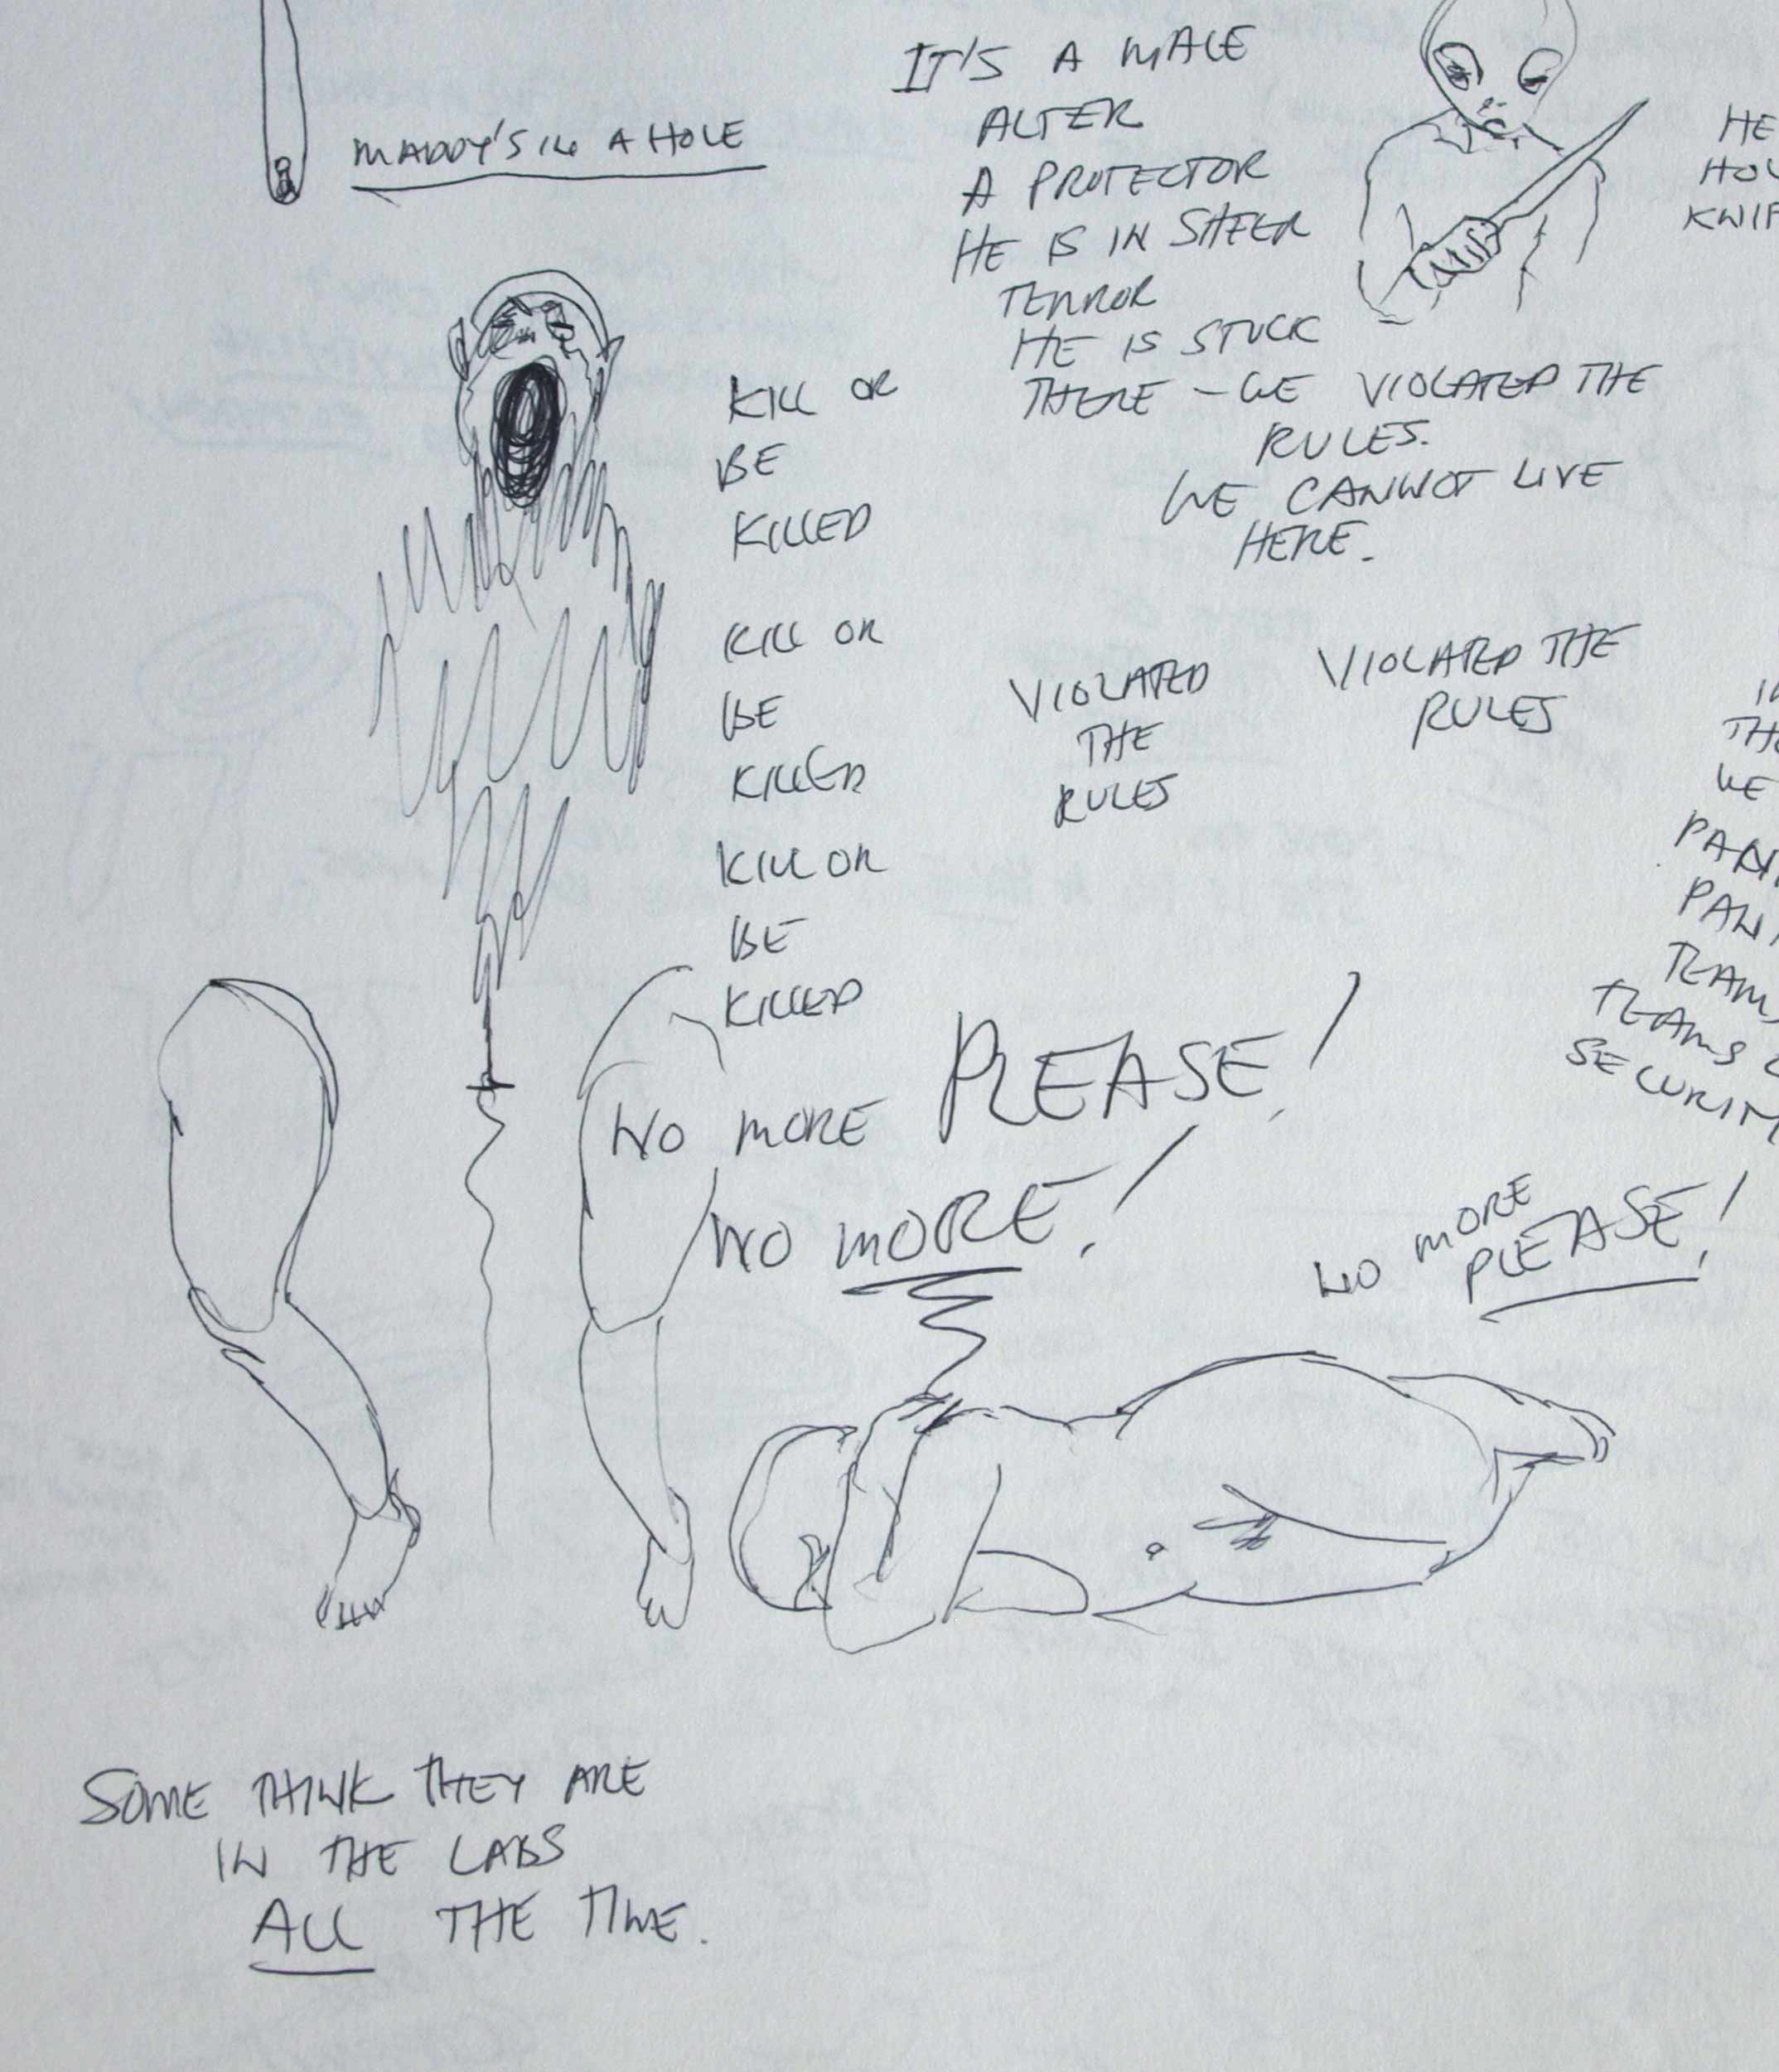 MADDY'S IN A HOLE
IT'S A MALE
ALTER
A PROTECTOR
HE IS IN SHEER
TERROR
HE IS STUCK
THERE - WE VIOLATED THE
RULES.
WE CANNOT LIVE
HERE.
HE
KILL OR
BE
KILLED
KILL OR
BE
KILLED
KILL OR
BE
KILLED
VIOLATED
THE
RULES
VIOLATED THE
RULES
WE
TEAMS
NO MORE PLEASE!
NO MORE!
NO MORE
PLEASE!
SOME THINK THEY ARE
IN THE LABS
ALL THE TIME.